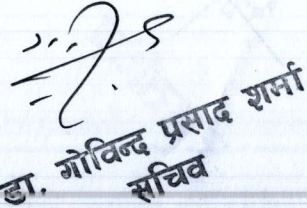 डा. गोविन्द प्रसाद शर्मा
सचिव